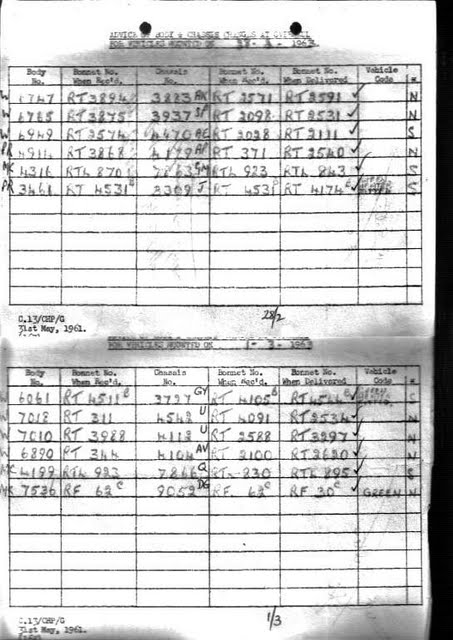 ADVICE OF BODY & CHASSIS CHANGES AT OVERHAUL
FOR VEHICLES MOUNTED ON 28- 2 - 1963
Body No. Bonnet No. When Rec'd. Chassis No. Bonnet No. When Rec'd. Bonnet No. When Delivered Vehicle Code *
W 6747 RT 3894 3883 AK RT 2571 RT 2591 ✓ N
W 6765 RT 3875 3937 SP RT 2098 RT 2531 ✓ N
W 6949 RT 2574 4470 RT 2028 RT 2111 ✓ S
PR 4914 RT 3868 4179 AP RT 371 RT 2540 ✓ N
MC 4316 RTL 870 7863 GM RTL 923 RTL 843 ✓ S
PR 3461 RT 4531 B 3309 J RT 453 B RT 4174 B ✓ S
C.13/CHP/G
31st May, 1961.
28/2
FOR VEHICLES MOUNTED ON 1- 3 - 1963
Body No. Bonnet No. When Rec'd. Chassis No. Bonnet No. When Rec'd. Bonnet No. When Delivered Vehicle Code *
W 6061 RT 4511 B 3727 GY RT 4105 B ✓ S
W 7018 RT 311 4542 U RT 4091 RT 2534 ✓ N
W 7010 RT 3988 4112 U RT 2588 RT 3297 ✓ N
W 6890 RT 344 4104 AV RT 2100 RT 2620 ✓ N
MC 4199 RTL 923 7866 Q RTL 830 RTL 895 ✓ S
7536 RF 62 C 9052 DG RF 62 C RF 30 C ✓ GREEN N
C.13/CHP/G
31st May, 1961.
1/3